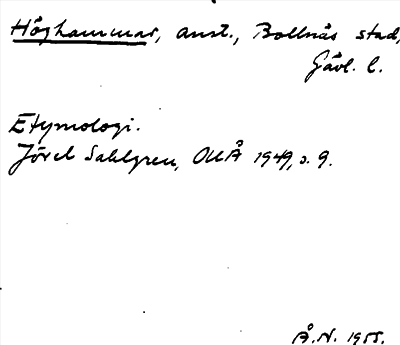 Höghammar, anst., Bollnäs stad,
Gävl. l.
Etymologi.
Jöran Sahlgren, OUÅ 1949, s. 9.
Å.N. 1955.